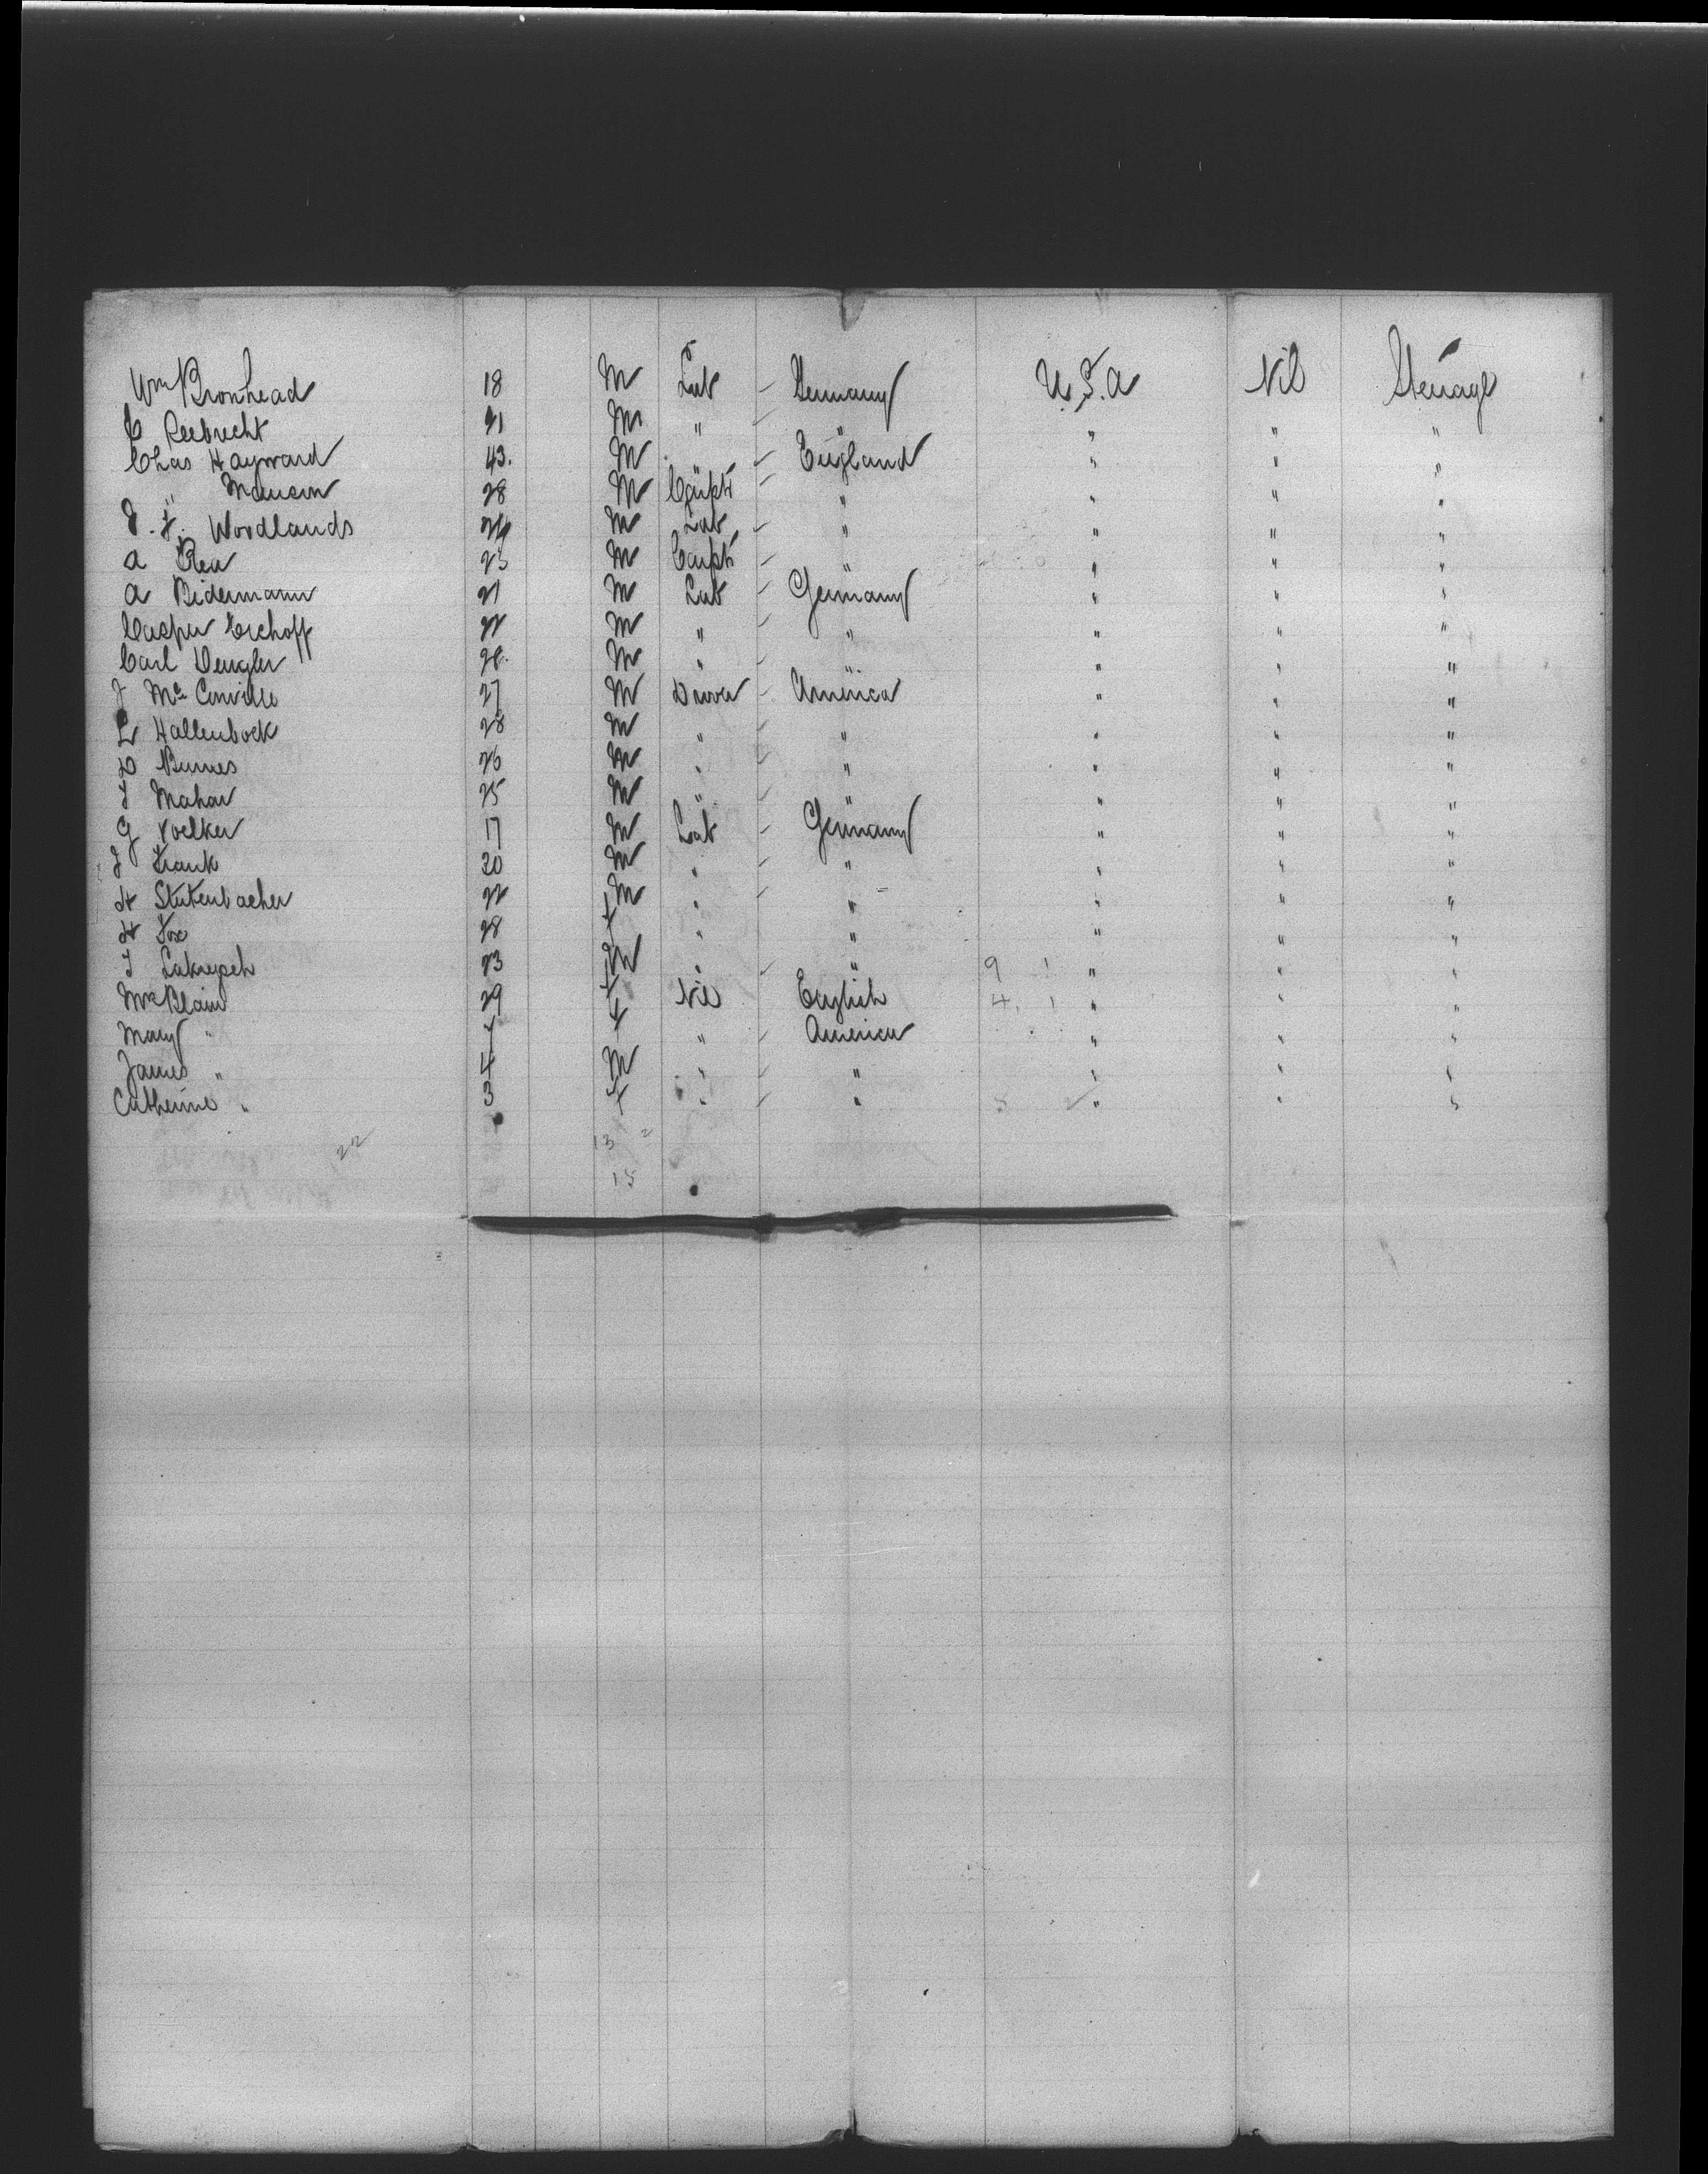 Wm Bronhead 18 M Lab Germany U.S.A Nil Steerage
C Reebrecht 21 M " " " " "
Chas Hayward 43. M England " " "
" Manson 28 M Carpt " " " "
J. F. Woodlands M Lab " " " "
A Rea 23 M Carpt " " " "
A Bidermann 21 M Lab Germany " " "
Casper Eschoff 22 M " " " " "
Carl Dengler 26. M " " " " "
J Mc Conville 27 M Drover America " " "
L Hallenbock 28 M " " " " "
D Burnes 26 M " " " " "
J Mahar 25 M " " " " "
G Voelker 17 M Lab Germany " " "
J Frank 20 M " " " " "
H Stutenbacher 22 M " " " " "
H Fox 28 F " " " " "
J 23 M " " 9 1 " " "
Mrs Blain 29 F Nil English 4. 1 " " "
Mary " F " America " " "
James " 4 M " " " " "
Catherine " 3 F " " " " "
22 13 2
15